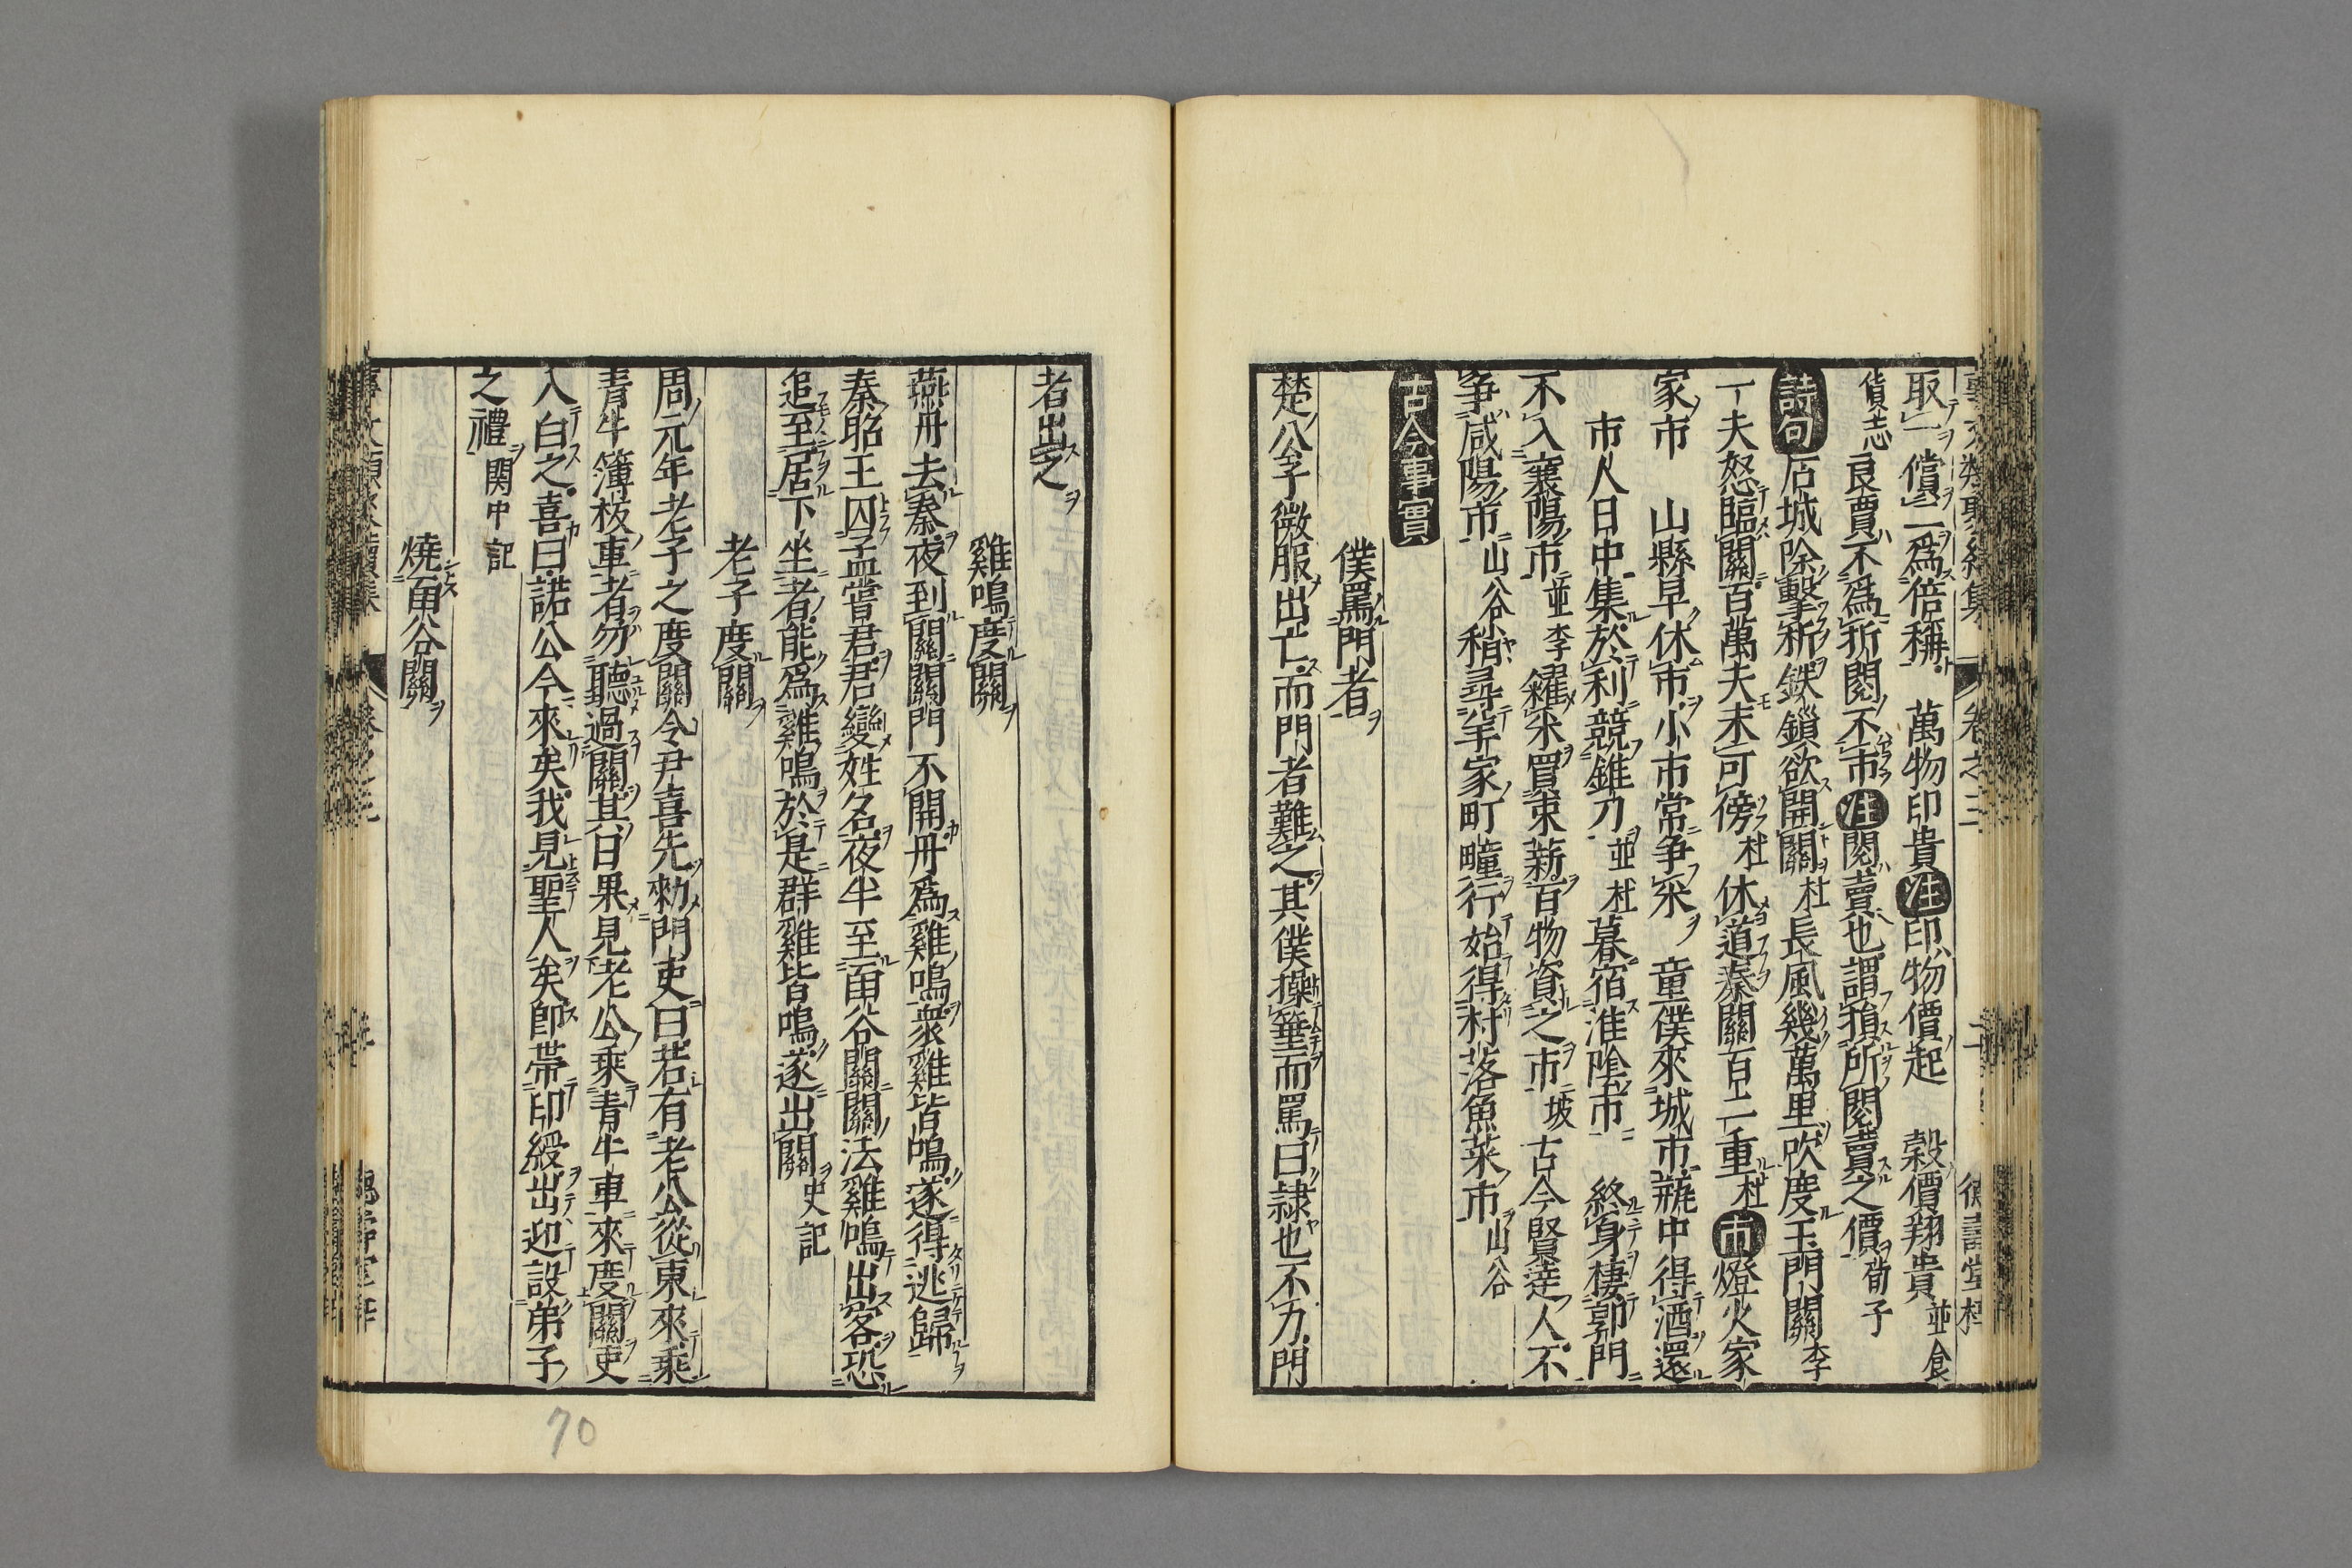 取一償二爲倍稱 萬物印貴注印物價起 穀價翔貴並食
貨志 良賈不爲折閱不市注閱賣也謂損所閱賣之價荀子
詩句 石城除擊柝鉄鎖欲開關杜 長風幾萬里吹度玉門關李
丁夫怒臨關百萬夫未可傍杜 休道秦關百二重杜 市 燈火家
家市 山縣早休市小市常爭米 童僕來城市瓶中得酒還
市人日中集於利競錐刀並杜 暮宿淮陰市 終身棲郭門
不入襄陽市並李 糴米買束薪百物資之市坡 古今賢達人不
爭咸陽市山谷 稍尋羊家町疃行始得村落魚菜市山谷
古今事實
僕罵門者
楚公子微服出亡而門者難之其僕操箠而罵曰隷也不力門
者出之
雞鳴度關
燕丹去秦夜到關關門不開丹爲雞鳴衆雞皆鳴遂得逃歸
秦昭王囚孟嘗君君變姓名夜半至函谷關關法雞鳴出客恐
追至居下坐者能爲雞鳴於是群雞皆鳴遂出關史記
老子度關
周元年老子之度關令尹喜先勑門吏曰若有老公從東來乘
青牛簿板車者勿聽過關其日果見老公乘青牛車來度關吏
入白之喜曰諾公今來矣我見聖人矣卽帯印綬出迎設弟子
之禮関中記
燒函谷關
70